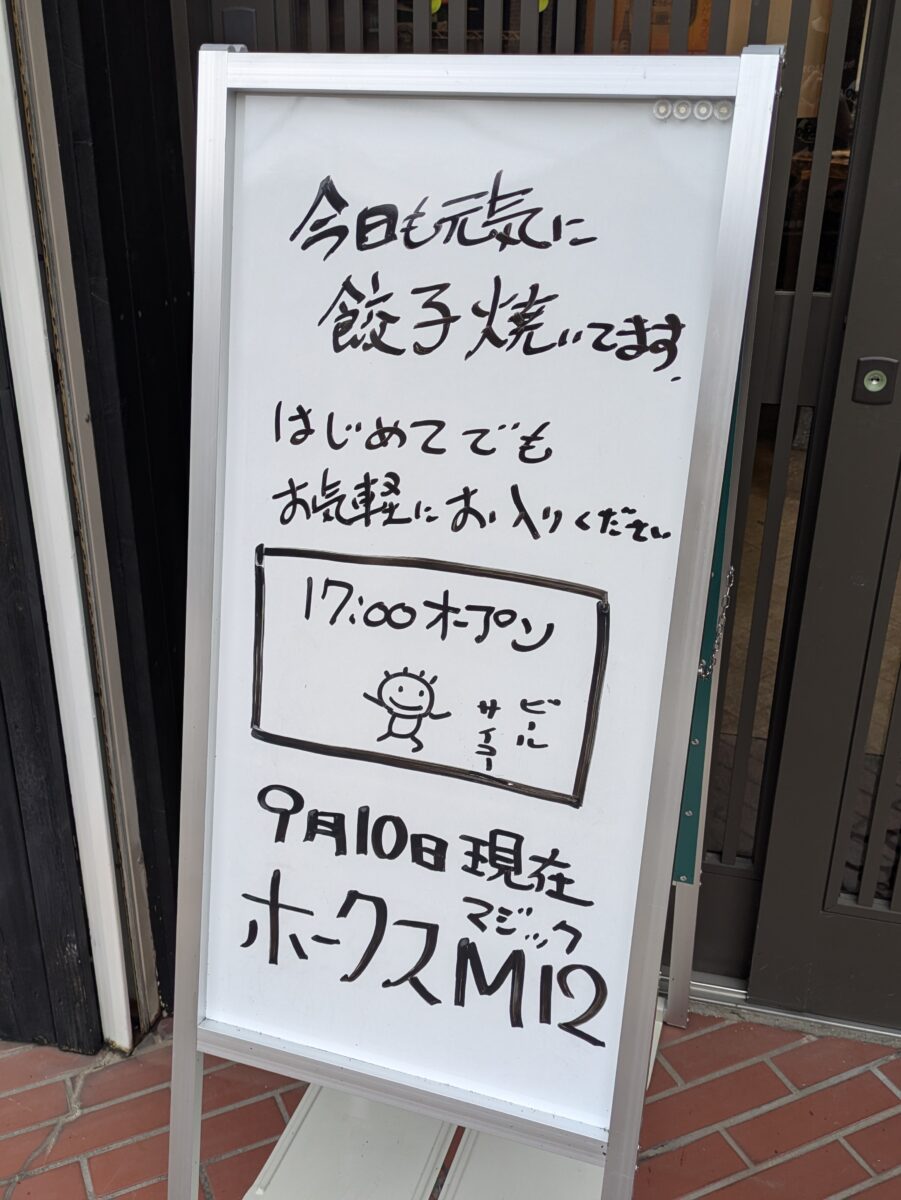 今日も元気に
餃子焼いてます.
はじめてでも
お気軽にお入りください
17:00オープン
ビール
サイコー
9月10日現在
マジック
ホークスM12